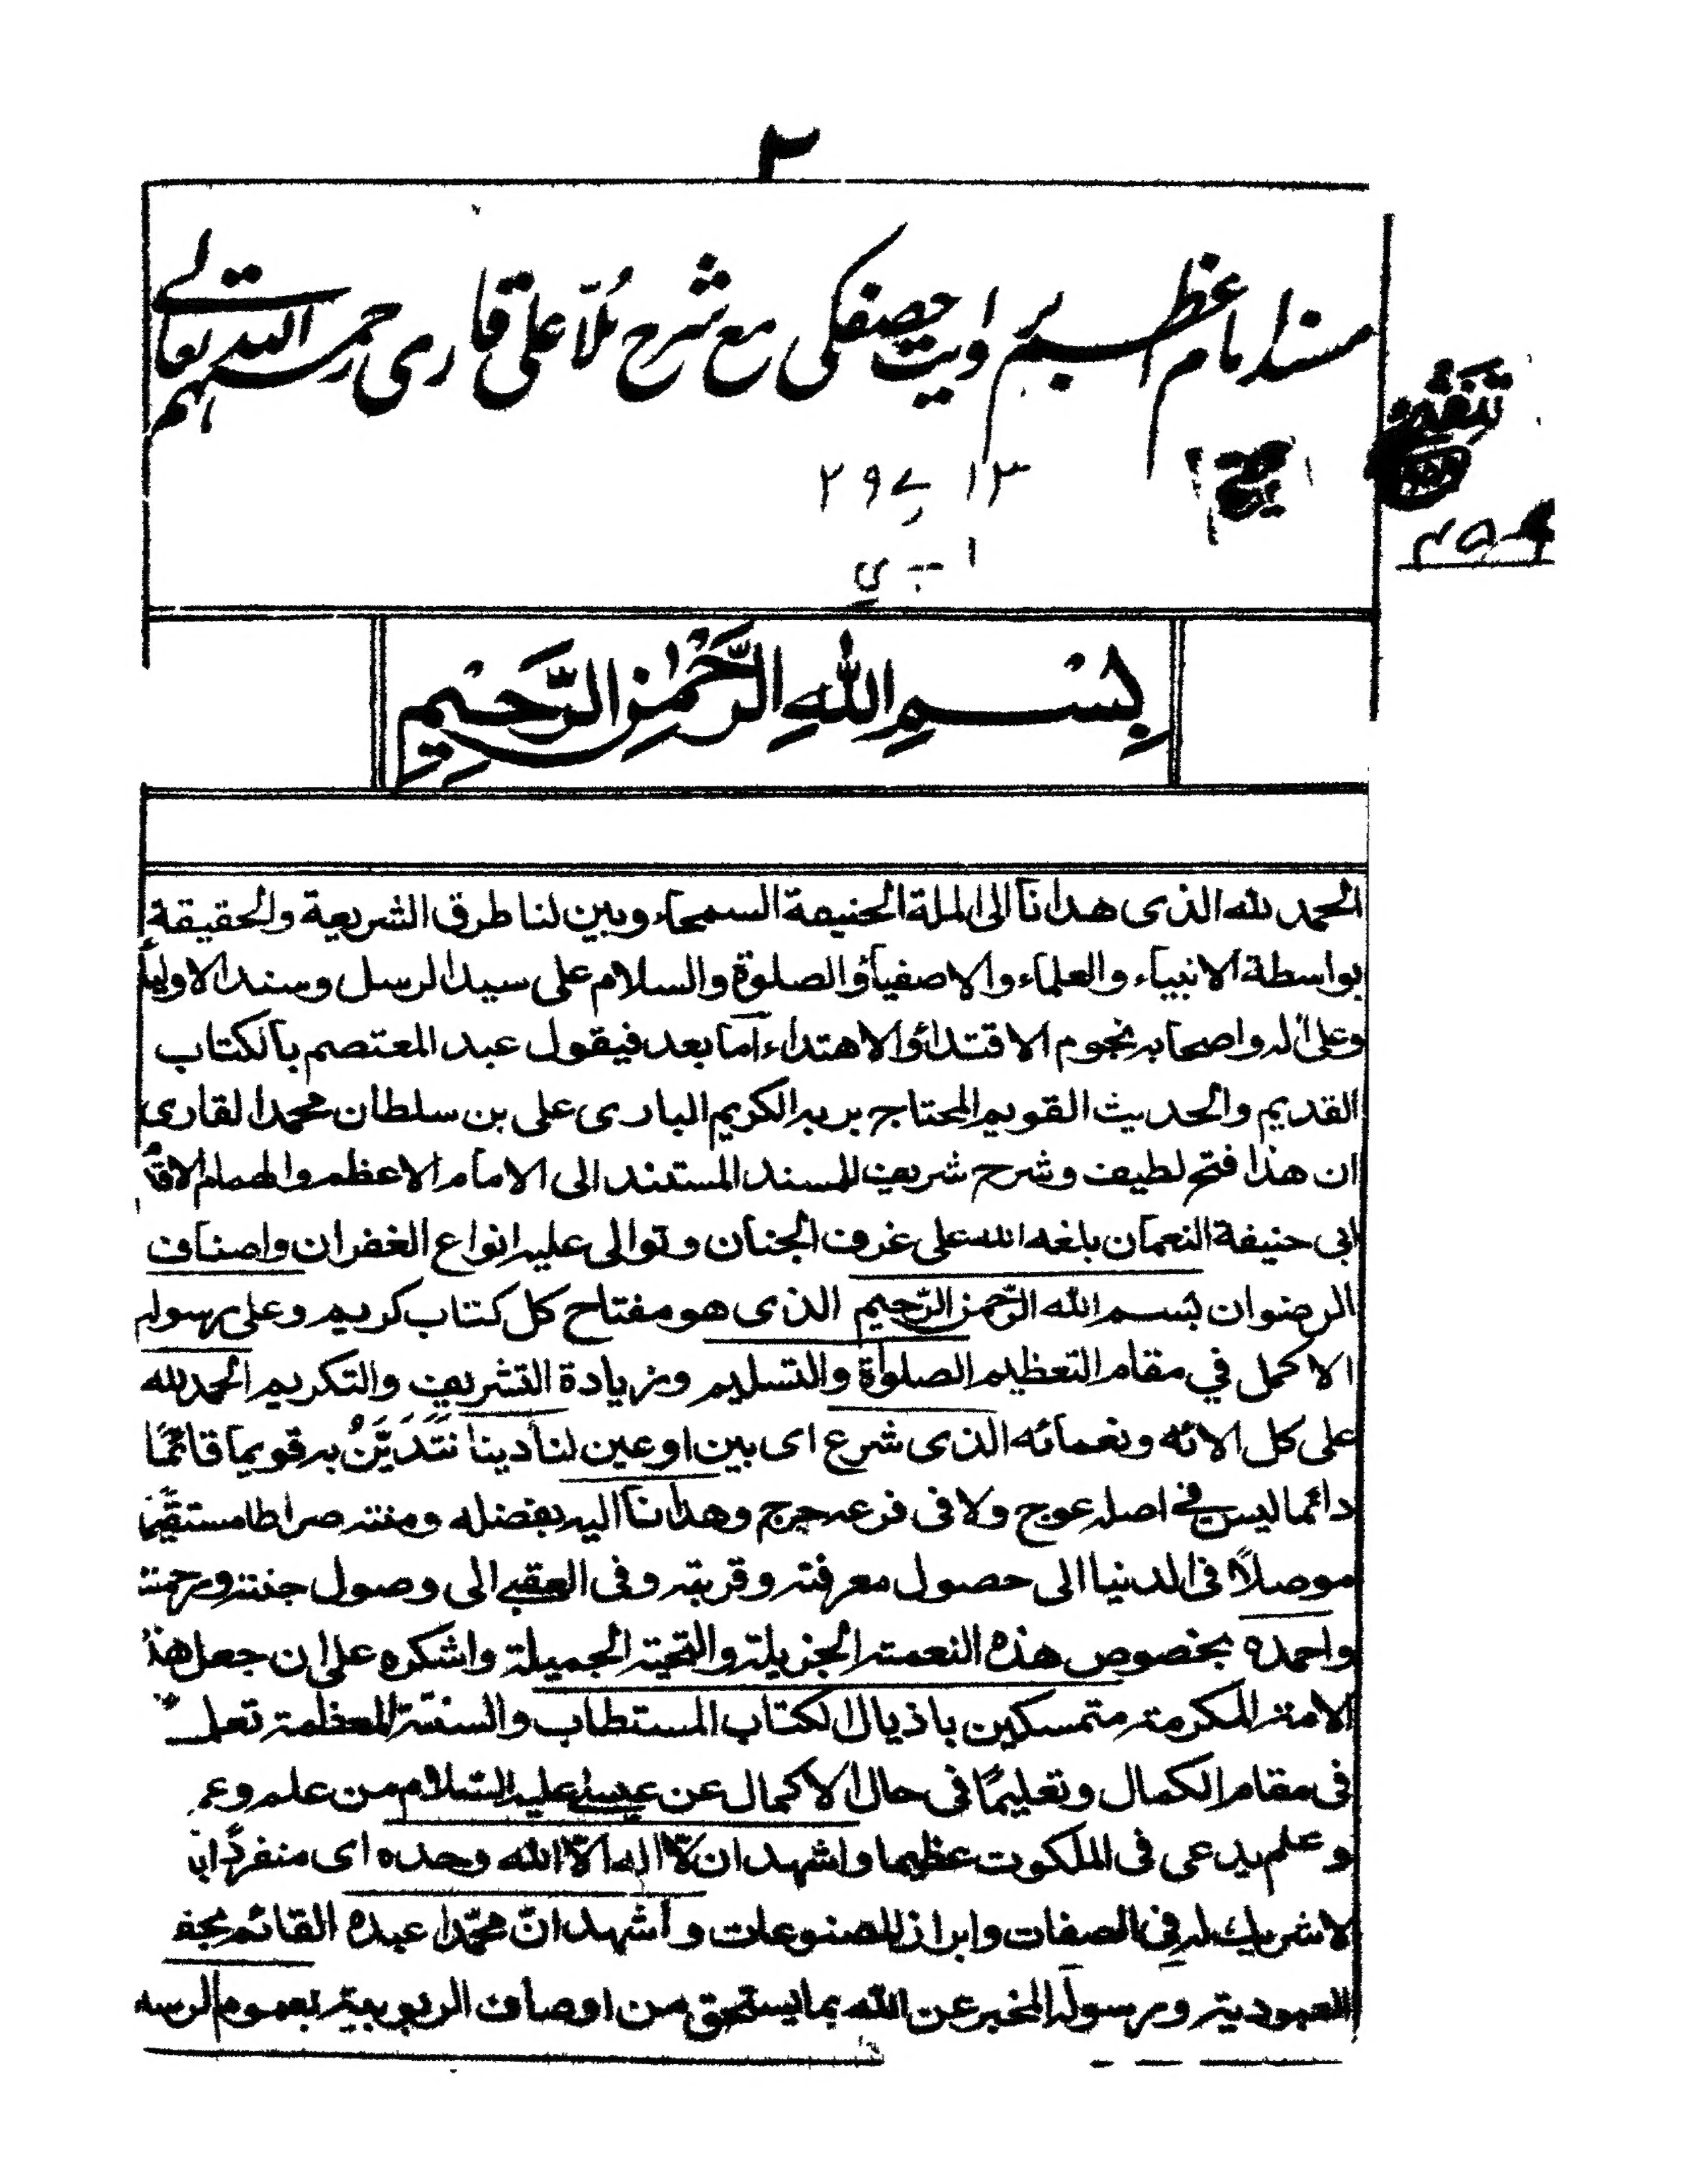 ٢
مسند امام اعظم بروایت حصفکی مع شرح مُلّا علی قاری رحمہم اللہ تعالے
٢٩٧ ١٣
بِسْمِ اللهِ الرَّحْمٰنِ الرَّحِيْمِ
الحمد لله الذى هدانا الى الملة الحنيفة السمحاء وبين لنا طرق الشريعة والحقيقة
بواسطة الانبياء والعلماء والاصفياء والصلوة والسلام على سيد الرسل وسند الاولياء
وعلى اله واصحابه نجوم الاقتداء والاهتداء اما بعد فيقول عبد المعتصم بالكتاب
القديم والحديث القويم المحتاج بربه الكريم البارى على بن سلطان محمد القارى
ان هذا فتح لطيف وشرح شريف للمسند المستند الى الامام الاعظم والهمام الاقدم
ابى حنيفة النعمان بلغه الله على غرف الجنان وتوالى عليه انواع الغفران واصناف
الرضوان بسم الله الرحمن الرحيم الذى هو مفتاح كل كتاب كريم وعلى رسوله
الاكمل في مقام التعظيم الصلواة والتسليم وزيادة التشريف والتكريم الحمد لله
على كل الائه ونعمائه الذى شرع اى بين اوعين لنا دينا نَتَدَيَّنُ به قويما قائمًا
دائما ليس في اصله عوج ولا فى فرعه حرج وهدانا اليه بفضله ومنته صراطا مستقيما
موصلاً فى الدنيا الى حصول معرفته وقربته وفى العقبے الى وصول جنته ورحمته
واحمده بخصوص هذه النعمته الجزيلة والتحية الجميلة واشكره على ان جعل هذه
الامته المكرمة متمسكين باذيال الكتاب المستطاب والسنة المعظمة
فى مقام الكمال وتعليمًا فى حال الاكمال عن عيسى عليه السلام من علم
وعلم يدعى فى الملكوت عظيما واشهد ان لا اله الا الله وحده اى منفردًا
لا شريك له في الصفات وابراز المصنوعات وأشهد انّ محمّدا عبده القائم
العبودية ورسوله المخبر عن الله بما يستحق من اوصاف الربوبية بعموم